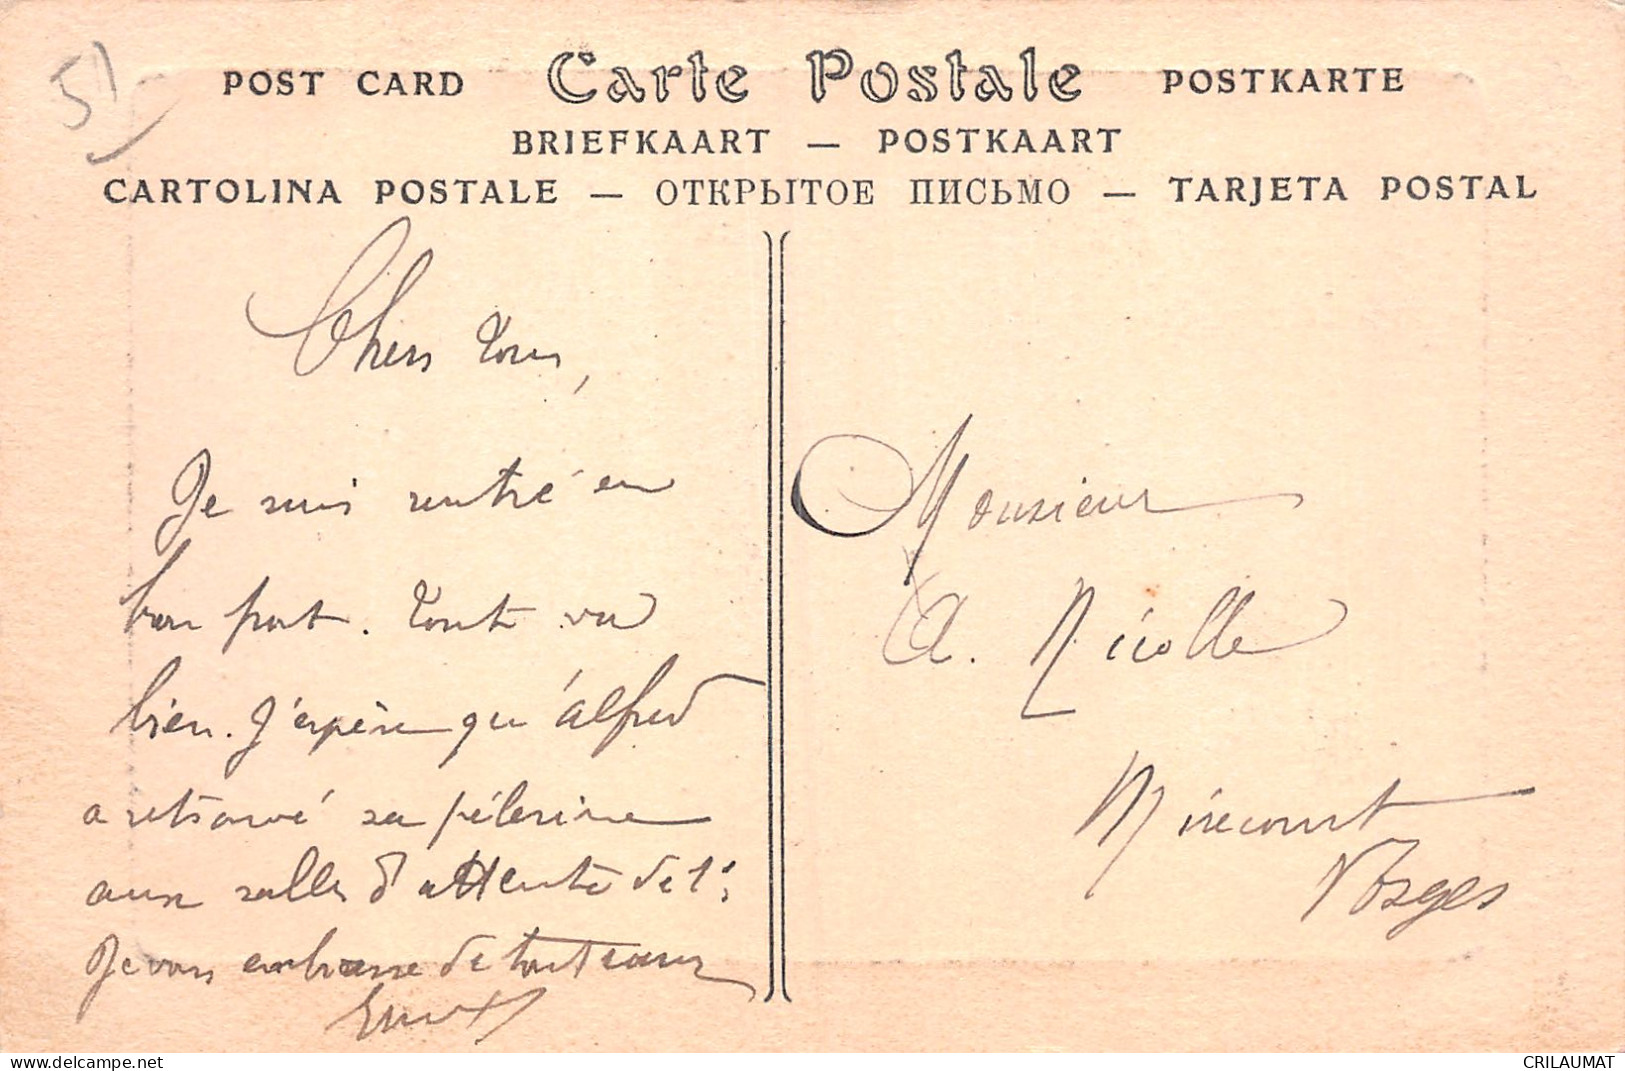 51
POST CARD Carte Postale POSTKARTE
BRIEFKAART — POSTKAART
CARTOLINA POSTALE — ОТКРЫТОЕ ПИСЬМО — TARJETA POSTAL
Chers tous,
Je suis rentré en
bon port. Tout va
bien. J'espère qu'Alfred
a retrouvé sa pélerine
aux salles d'attente de
Je vous embrasse de tout cœur
Monsieur
A. Nicolle
Mirecourt
Vosges
www.delcampe.net
CRILAUMAT